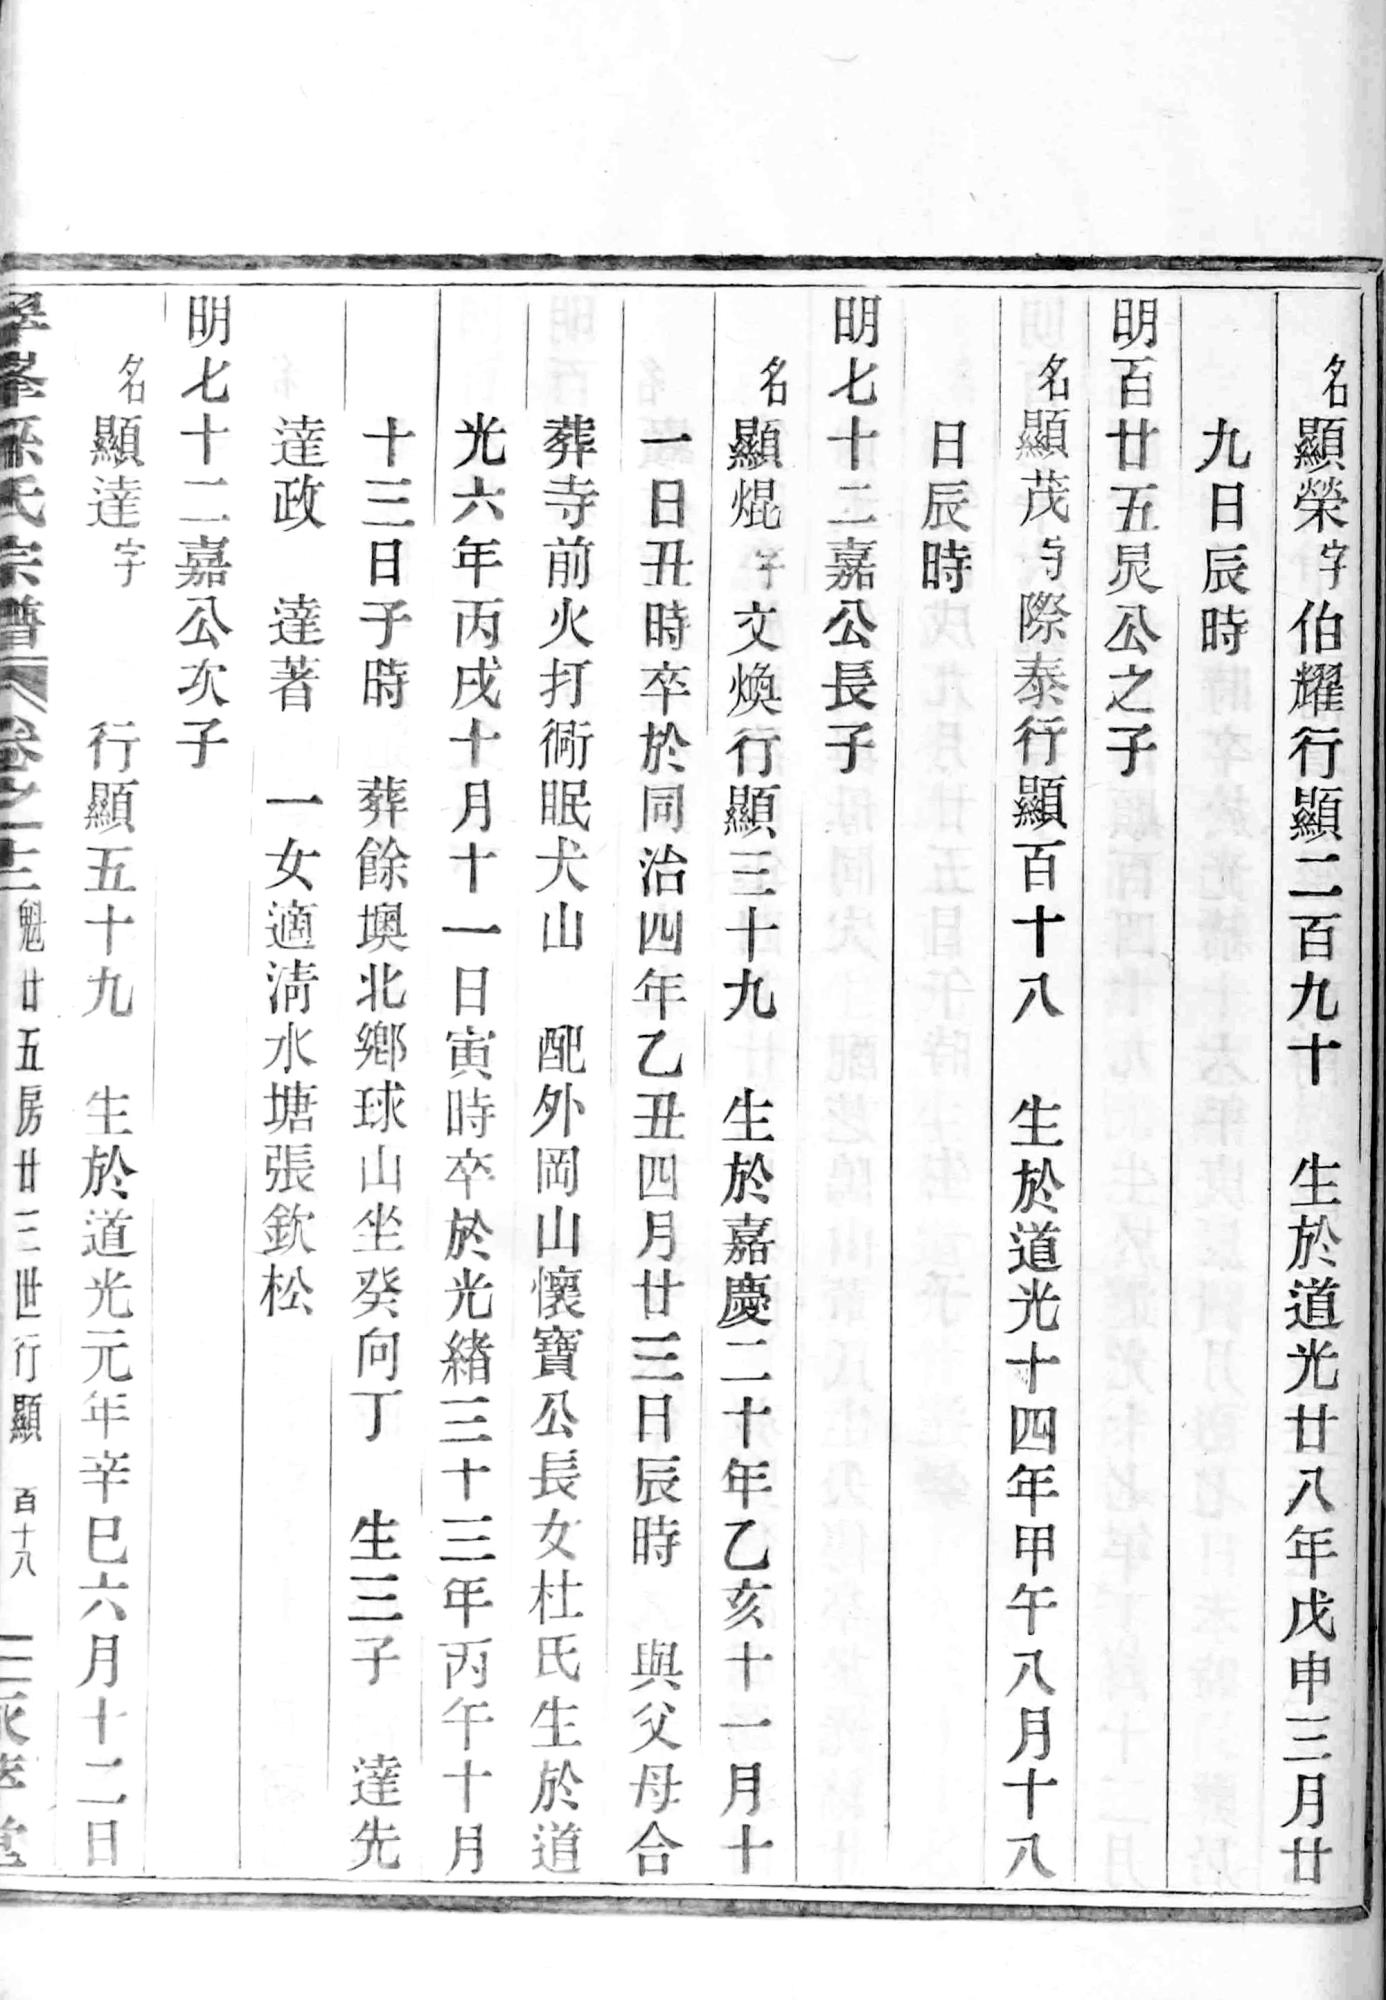 名顯榮字伯耀行顯二百九十　生於道光廿八年戊申三月廿
九日辰時
明百廿五炅公之子
名顯茂字際泰行顯百十八　生於道光十四年甲午八月十八
日辰時
明七十二嘉公長子
名顯焜字文煥行顯三十九　生於嘉慶二十年乙亥十一月十
一日丑時卒於同治四年乙丑四月廿三日辰時　與父母合
葬寺前火打衕眠犬山　配外岡山懷寶公長女杜氏生於道
光六年丙戌十月十一日寅時卒於光緒三十三年丙午十月
十三日子時　葬餘墺北鄉球山坐癸向丁　生三子　達先
達政　達著　一女適淸水塘張欽松
明七十二嘉公次子
名顯達字　　行顯五十九　生於道光元年辛巳六月十二日
孫氏宗譜　卷之十三　魁廿五房廿三世行顯　百十八　堂